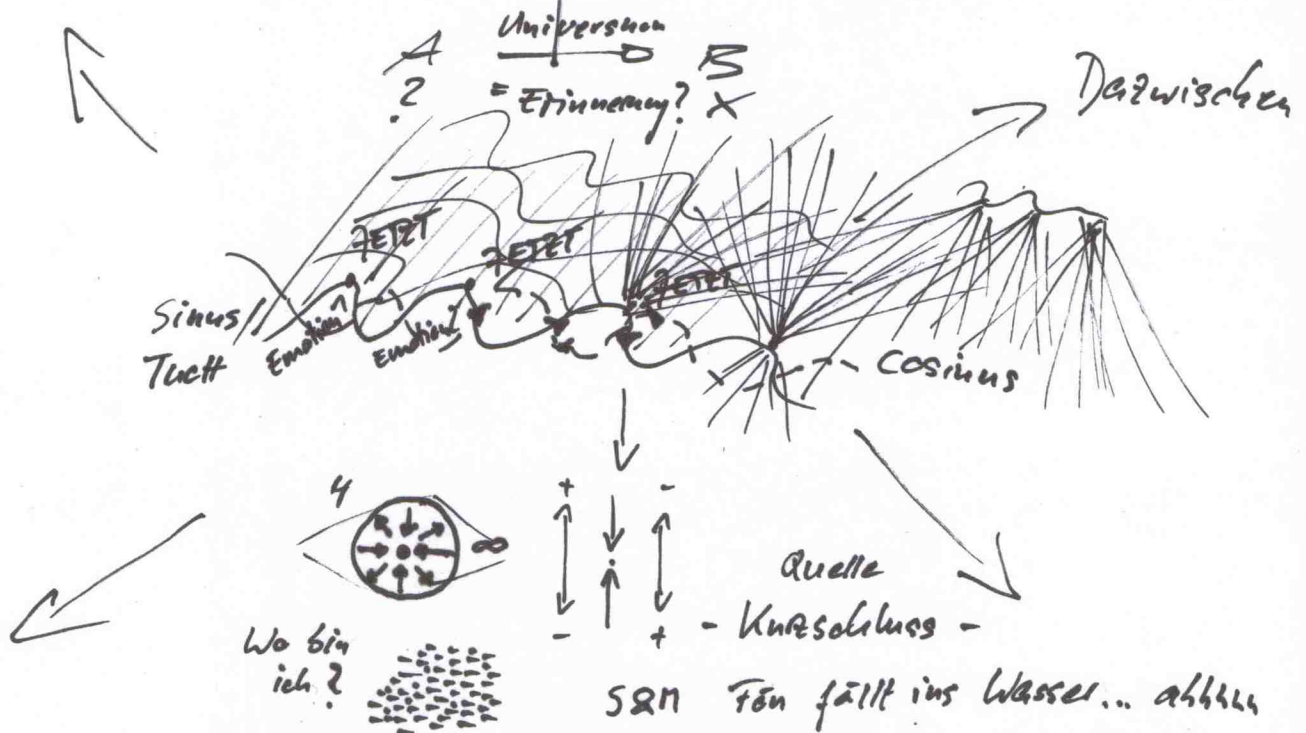 A Universum B
? = Erinnerung? X
Dazwischen
JETZT
JETZT
JETZT
Sinus
Emotion
Emotion
Cosinus
4
∞
+ -
- +
Quelle
- Kurzschluss -
Wo bin
ich?
S&M Fön fällt ins Wasser... ahhhh